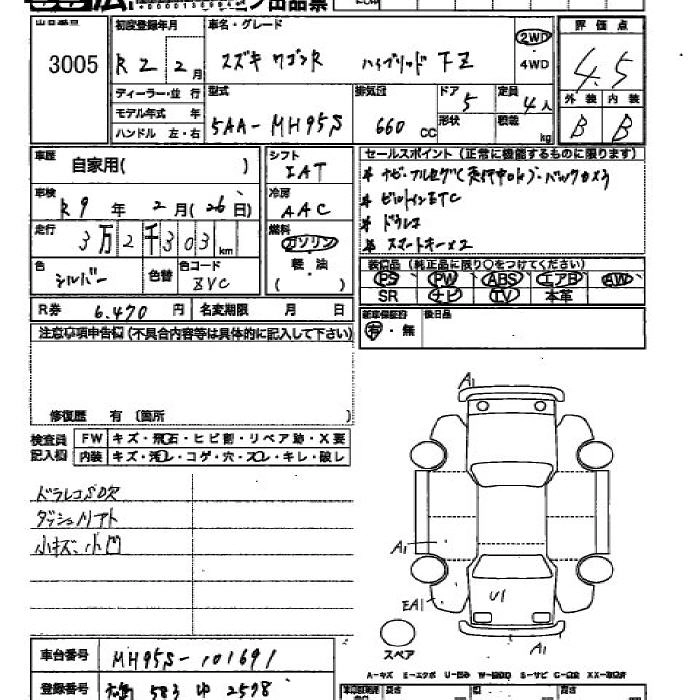 出品票
出品番号 3005
初度登録年月 R2 2月
車名・グレード スズキ ワゴンR ハイブリッド FZ
2WD
4WD
評価点 4.5
外装 B 内装 B
ディーラー・並行
モデル年式 年
ハンドル 左・右
型式 5AA-MH95S
排気量 660 CC
ドア 5
形状
定員 4人
積載 kg
車歴 自家用( )
シフト IAT
車検 R9年 2月(26日)
冷房 AAC
走行 3万2千303km
燃料 ガソリン
軽・油
( )
色 シルバー
色替
色コード ZVC
R券 6,470円
名変期限 月 日
セールスポイント(正常に機能するものに限ります)
* ナビ・フルセグ(走行中OK)・バックカメラ
* ビルトインETC
* ドラレコ
* スマートキー×2
装備品(純正品に限り○をつけてください)
PS PW ABS エアB AW
SR ナビ TV 本革
新車保証書 有・無
後日品
注意事項申告欄(不具合内容等は具体的に記入して下さい)
修復歴 有(箇所 )
検査員記入欄
FW キズ・飛石・ヒビ割・リペア跡・X要
内装 キズ・汚レ・コゲ・穴・スレ・キレ・破レ
ドラレコSD欠
ダッシュノリアト
小キズ、小凹
A1
A1
EA1
U1
A1
スペア
車台番号 MH95S-101691
登録番号 583 ゆ 2598
A-キズ E-エクボ U-凹み W-波凹 S-サビ C-腐食 XX-交換済